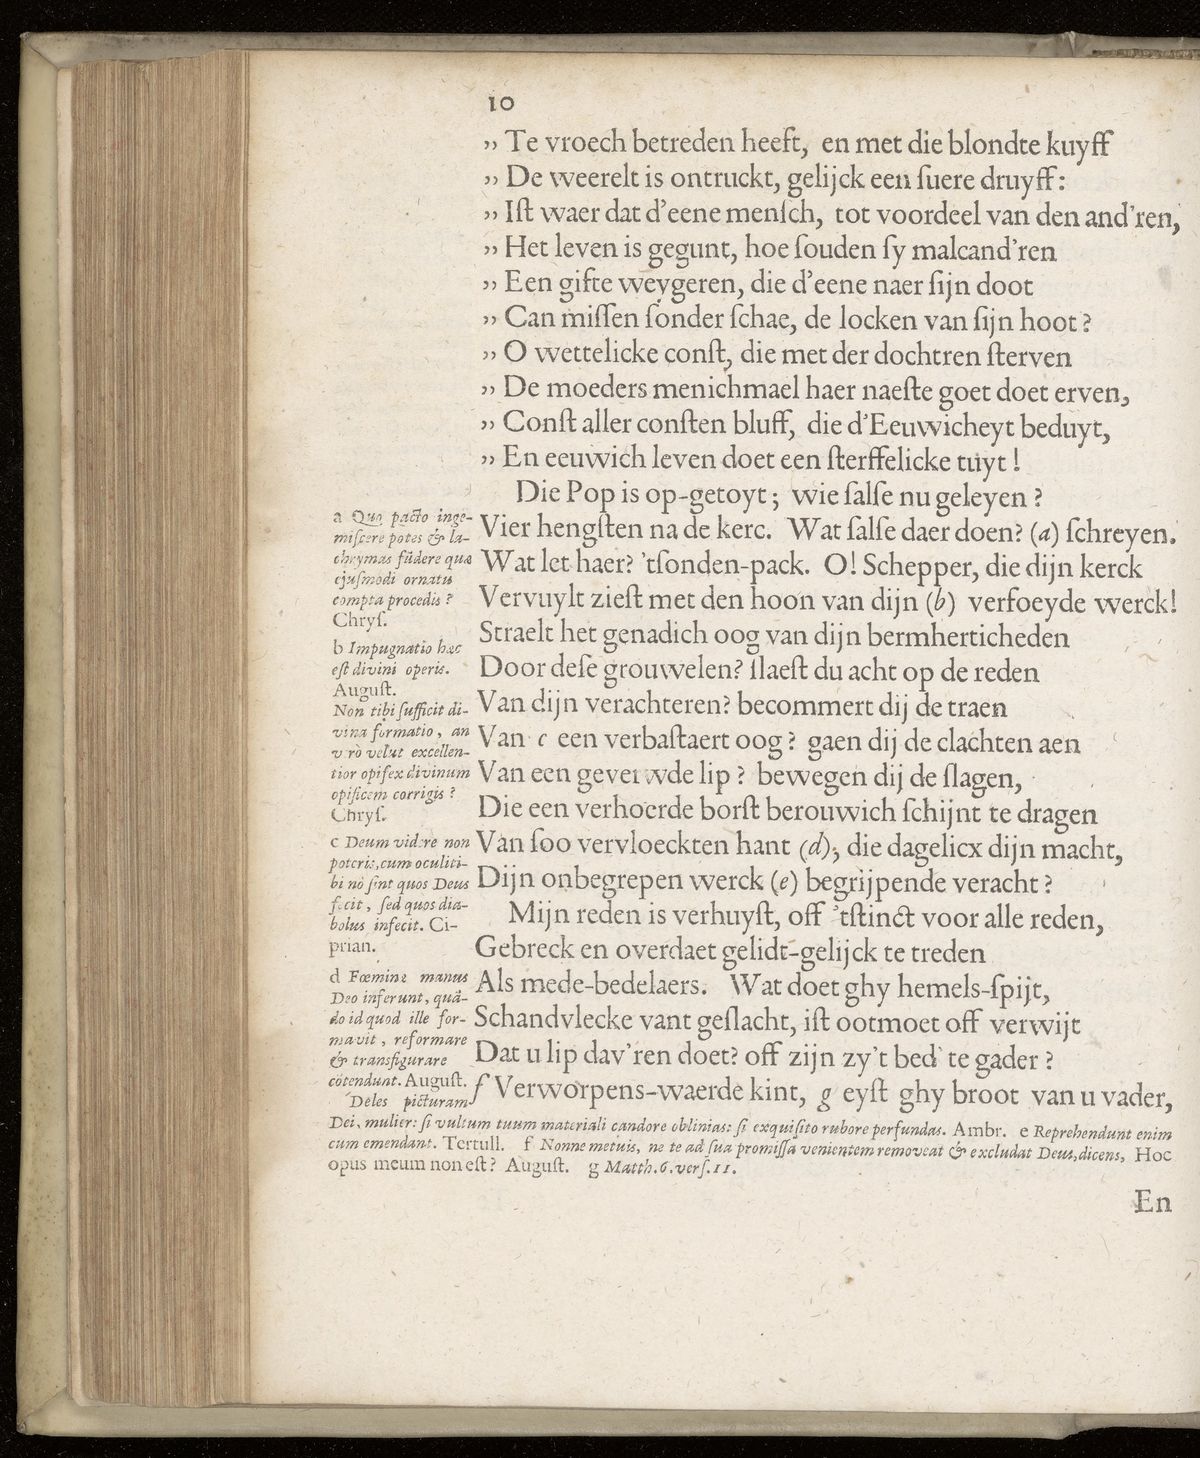 10
„ Te vroech betreden heeft, en met die blondte kuyff
„ De weerelt is ontruckt, gelijck een suere druyff:
„ Ist waer dat d'eene mensch, tot voordeel van den and'ren,
„ Het leven is gegunt, hoe souden sy malcand'ren
„ Een gifte weygeren, die d'eene naer sijn doot
„ Can missen sonder schae, de locken van sijn hoot?
„ O wettelicke const, die met der dochtren sterven
„ De moeders menichmael haer naeste goet doet erven,
„ Const aller consten bluff, die d'Eeuwicheyt beduyt,
„ En eeuwich leven doet een sterffelicke tuyt!
Die Pop is op-getoyt; wie salse nu geleyen?
Vier hengsten na de kerc. Wat salse daer doen? (a) schreyen.
Wat let haer? 'tsonden-pack. O! Schepper, die dijn kerck
Vervuylt ziest met den hoon van dijn (b) verfoeyde werck!
Straelt het genadich oog van dijn bermherticheden
Door dese grouwelen? slaest du acht op de reden
Van dijn verachteren? becommert dij de traen
Van c een verbastaert oog? gaen dij de clachten aen
Van een geverwde lip? bewegen dij de slagen,
Die een verhoerde borst berouwich schijnt te dragen
Van soo vervloeckten hant (d), die dagelicx dijn macht,
Dijn onbegrepen werck (e) begrijpende veracht?
Mijn reden is verhuyst, off 'tstinct voor alle reden,
Gebreck en overdaet gelidt-gelijck te treden
Als mede-bedelaers. Wat doet ghy hemels-spijt,
Schandvlecke vant geslacht, ist ootmoet off verwijt
Dat u lip dav'ren doet? off zijn zy't bed' te gader?
f Verworpens-waerde kint, g eyst ghy broot van u vader,
a Quo pacto inge-
miscere potes & la-
chrymas fūdere quæ
ejusmodi ornatu
compta procedis?
Chrys.
b Impugnatio hæc
est divini operis.
August.
Non tibi sufficit di-
vina formatio, an
vero velut excellen-
tior opifex divinum
opificem corrigis?
Chrys.
c Deum videre non
poteris, cum oculi ti-
bi nō sint quos Deus
fecit, sed quos dia-
bolus infecit. Ci-
prian.
d Fœminæ manus
Deo inferunt, quā-
do id quod ille for-
mavit, reformare
& transfigurare
cōtendunt. August.
Deles picturam
Dei, mulier: si vultum tuum materiali candore oblinias: si exquisito rubore perfundas. Ambr. e Reprehendunt enim
cum emendant. Tertull. f Nonne metuis, ne te ad sua promissa venientem removeat & excludat Deus, dicens, Hoc
opus meum non est? August. g Matth. 6. vers. 11.
En